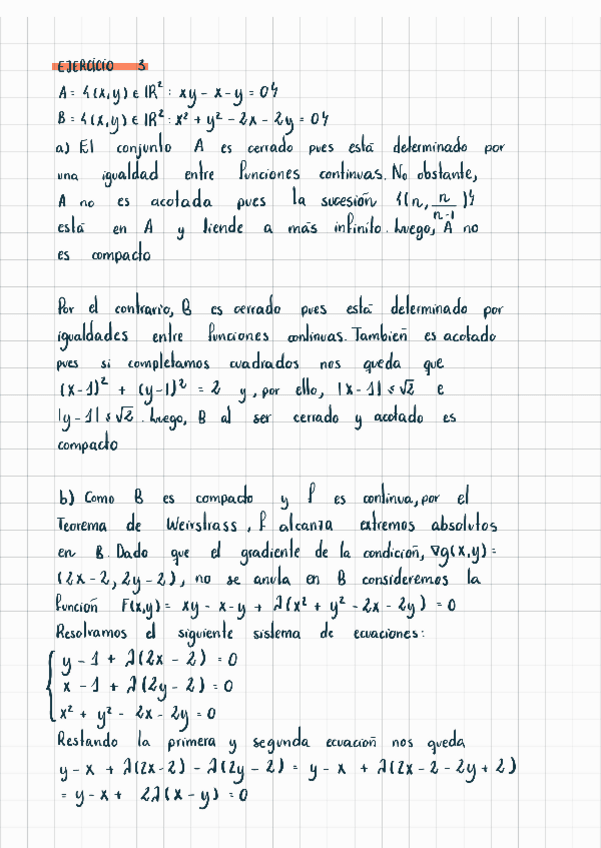 EJERCICIO 3
A = {(x,y) ∈ ℝ² : xy - x - y = 0}
B = {(x,y) ∈ ℝ² : x² + y² - 2x - 2y = 0}
a) El conjunto A es cerrado pues está determinado por
una igualdad entre funciones continuas. No obstante,
A no es acotada pues la sucesión {(n, n/(n-1))}
está en A y tiende a más infinito. Luego, A no
es compacto
Por el contrario, B es cerrado pues está determinado por
igualdades entre funciones continuas. También es acotado
pues si completamos cuadrados nos queda que
(x-1)² + (y-1)² = 2 y, por ello, |x-1| ≤ √2 e
|y-1| ≤ √2. Luego, B al ser cerrado y acotado es
compacto
b) Como B es compacto y f es continua, por el
Teorema de Weirstrass, f alcanza extremos absolutos
en B. Dado que el gradiente de la condición, ∇g(x,y) =
(2x-2, 2y-2), no se anula en B consideremos la
función F(x,y) = xy - x - y + λ(x² + y² - 2x - 2y) = 0
Resolvamos el siguiente sistema de ecuaciones:
y - 1 + λ(2x - 2) = 0
x - 1 + λ(2y - 2) = 0
x² + y² - 2x - 2y = 0
Restando la primera y segunda ecuación nos queda
y - x + λ(2x-2) - λ(2y-2) = y - x + λ(2x - 2 - 2y + 2)
= y - x + 2λ(x - y) = 0